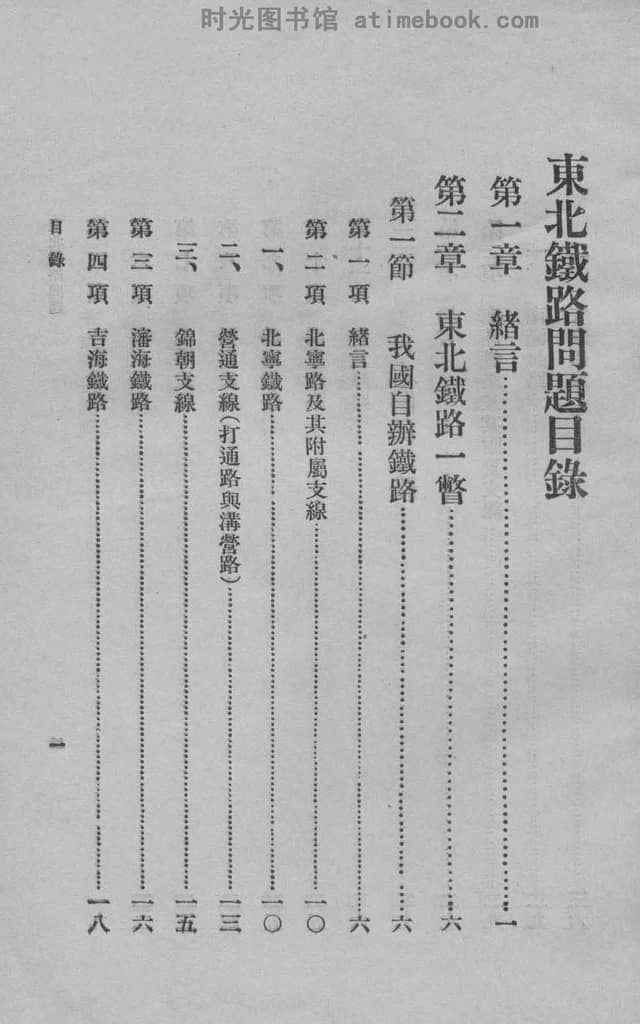 时光图书馆 atimebook.com
東北鐵路問題目錄
第一章 緒言……一
第二章 東北鐵路一瞥……六
第一節 我國自辦鐵路……六
第一項 緒言……六
第二項 北寧路及其附屬支線……一〇
一、北寧鐵路……一〇
二、營通支線（打通路與溝營路）……一三
三、錦朝支線……一五
第三項 瀋海鐵路……一六
第四項 吉海鐵路……一八
目錄 一